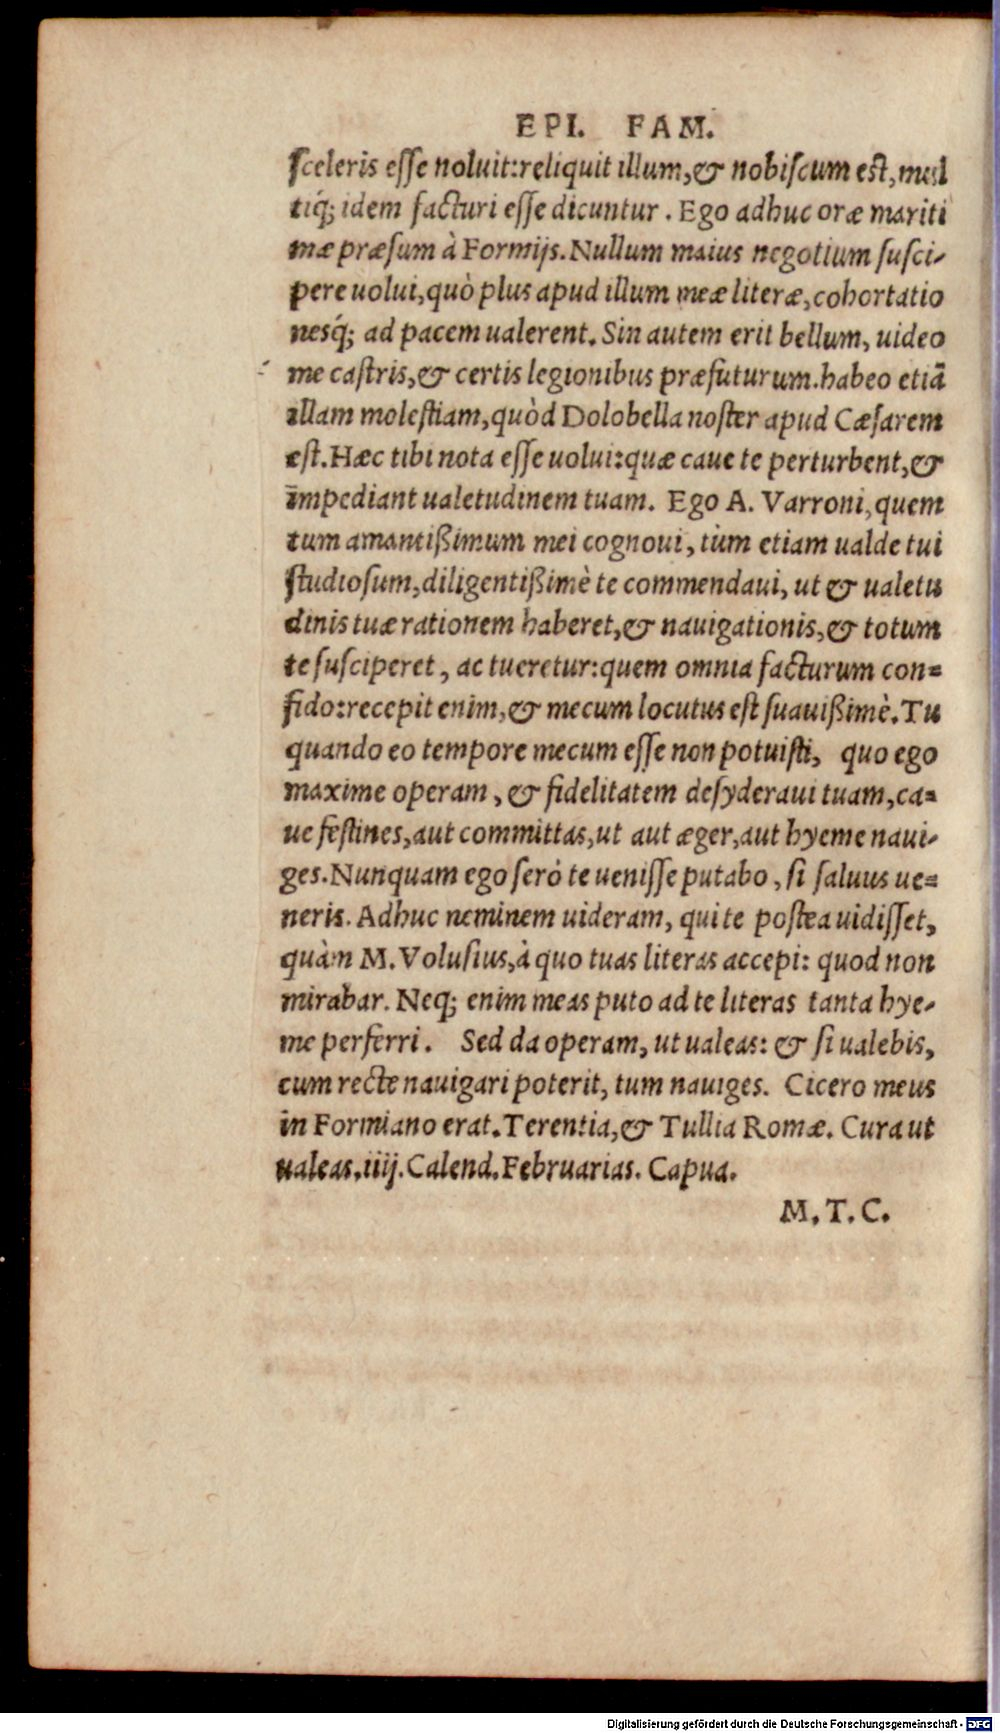 EPI. FAM.
sceleris esse noluit:reliquit illum,& nobiscum est, mul
tiq́; idem facturi esse dicuntur. Ego adhuc oræ mariti
mæ præsum à Formijs. Nullum maius negotium susci-
pere uolui, quò plus apud illum meæ literæ, cohortatio
nesq́; ad pacem ualerent. Sin autem erit bellum, uideo
me castris,& certis legionibus præfuturum. habeo etiã
illam molestiam, quòd Dolobella noster apud Cæsarem
est. Hæc tibi nota esse uolui: quæ caue te perturbent,&
īmpediant ualetudinem tuam. Ego A. Varroni, quem
tum amantißimum mei cognoui, tùm etiam ualde tui
studiosum, diligentißimè te commendaui, ut & ualetu
dinis tuæ rationem haberet,& nauigationis,& totum
te susciperet, ac tueretur: quem omnia facturum con-
fido: recepit enim,& mecum locutus est suauißimè. Tu
quando eo tempore mecum esse non potuisti, quo ego
maxime operam, & fidelitatem desyderaui tuam, ca-
ue festines, aut committas, ut aut æger, aut hyeme naui-
ges. Nunquam ego serò te uenisse putabo, si saluus ue-
neris. Adhuc neminem uideram, qui te postea uidisset,
quàm M. Volusius, à quo tuas literas accepi: quod non
mirabar. Neq; enim meas puto ad te literas tanta hye-
me perferri. Sed da operam, ut ualeas: & si ualebis,
cum recte nauigari poterit, tum nauiges. Cicero meus
in Formiano erat. Terentia,& Tullia Romæ. Cura ut
ualeas. iiij. Calend. Februarias. Capua.
M. T. C.
Digitalisierung gefördert durch die Deutsche Forschungsgemeinschaft - DFG